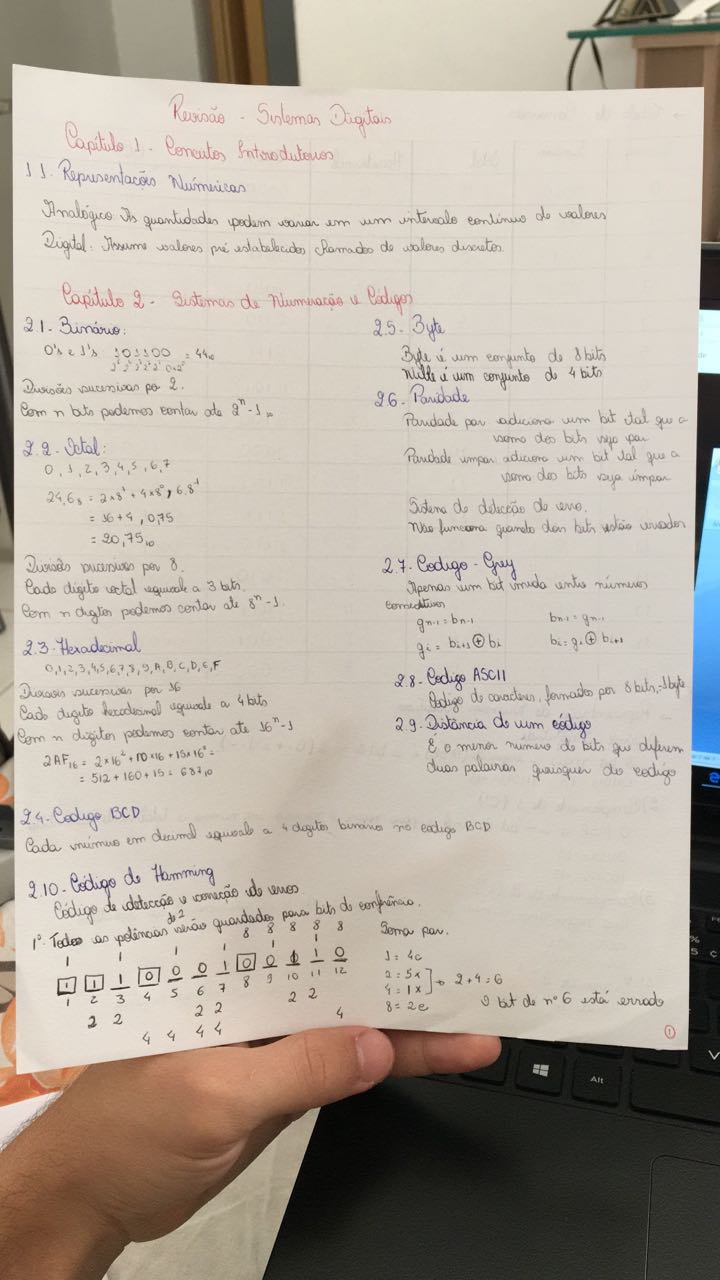 Revisão - Sistemas Digitais
Capítulo 1 - Conceitos Introdutórios
1.1. Representações Numéricas
Analógico: As quantidades podem variar em um intervalo contínuo de valores
Digital: Assume valores pré estabelecidos chamados de valores discretos
Capítulo 2 - Sistemas de Numeração e Códigos
2.1- Binário:
0's e 1's 101100 = 44₁₀
Divisões sucessivas por 2.
Com n bits podemos contar até 2ⁿ-1₁₀
2.2- Octal:
0, 1, 2, 3, 4, 5, 6, 7
24,6₈ = 2×8¹ + 4×8⁰, 6.8⁻¹
= 16 + 4, 0,75
= 20,75₁₀
Divisões sucessivas por 8.
Cada dígito octal equivale a 3 bits.
Com n dígitos podemos contar até 8ⁿ-1.
2.3- Hexadecimal
0,1,2,3,4,5,6,7,8,9,A,B,C,D,E,F
Divisões sucessivas por 16
Cada dígito hexadecimal equivale a 4 bits
Com n dígitos podemos contar até 16ⁿ-1
2AF₁₆ = 2×16² + 10×16 + 15×16⁰ =
= 512 + 160 + 15 = 687₁₀
2.4- Codigo BCD
Cada número em decimal equivale a 4 digitos binários no codigo BCD
2.5- Byte
Byte é um conjunto de 8 bits
é um conjunto de 4 bits
2.6- Paridade
Paridade par adiciona um bit tal que a
soma dos bits seja par
Paridade impar adiciona um bit tal que a
soma dos bits seja ímpar
Sistema de detecção de erro.
Não funciona quando dois bits estão errados
2.7- Codigo - Grey
Apenas um bit muda entre números
consecutivos
gₙ₋₁ = bₙ₋₁ bₙ₋₁ = gₙ₋₁
gᵢ = bᵢ₊₁ ⊕ bᵢ bᵢ = gᵢ ⊕ bᵢ₊₁
2.8- Codigo ASCII
Codigo de caracteres, formados por 8 bits,-1byte
2.9- Distância de um código
É o menor numero de bits que diferem
duas palavras quaisquer do codigo
2.10- Código de Hamming
Código de detecção e correção de erros.
1º. Todas as potências de 2 serão guardados para bits de conferência.
8 8 8 8 8
1 1 1 1 1 1
1 1 1 0 0 0 1 0 0 1 1 0
1 2 3 4 5 6 7 8 9 10 11 12
2 2 2 2 2 2
4 4 4 4 4
Soma par.
1 = 4c
2 = 5x
4 = 1x
8 = 2c
→ 2+4=6
O bit de nº 6 está errado
1
Alt